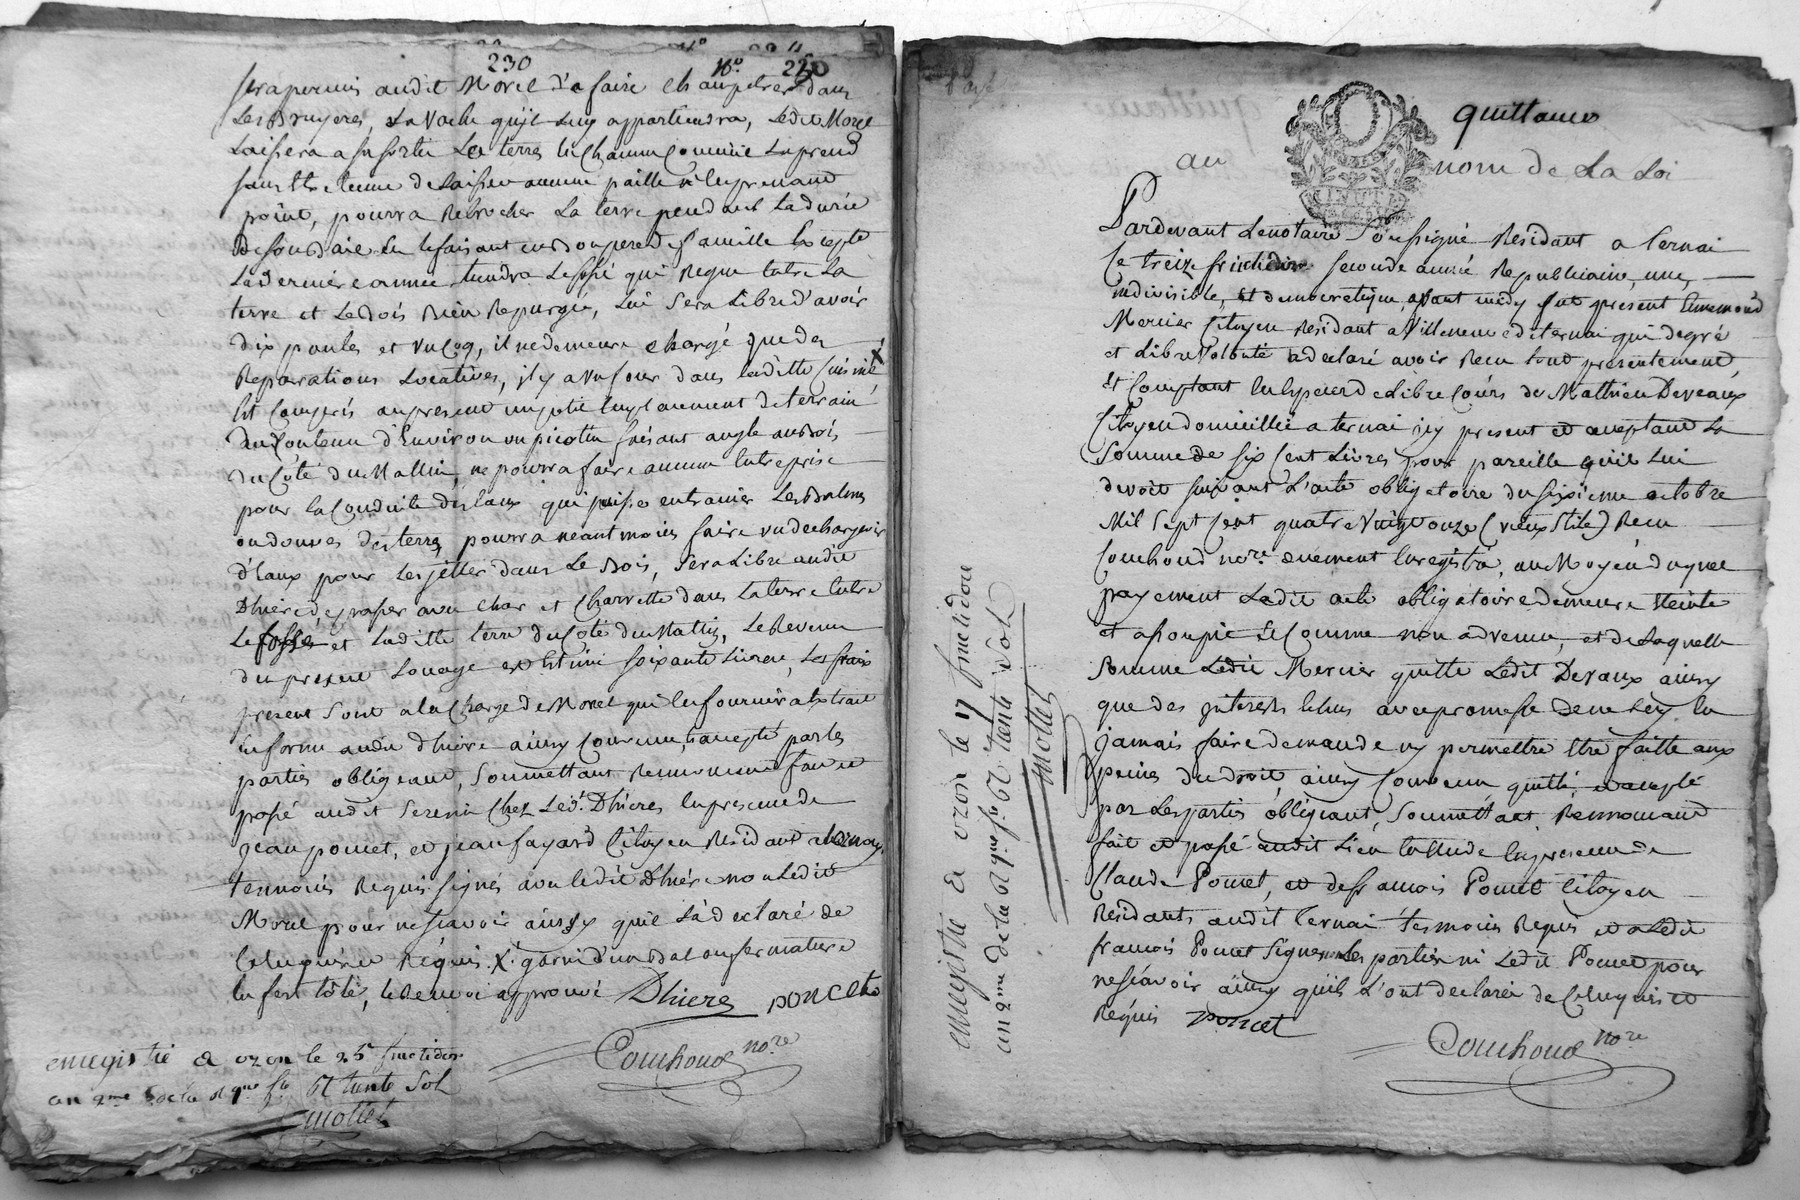 230
No. 230
sera permis audit Morel d'e faire Champeyer dans
Les Bruyeres, La Vache quyl Luy appartiendra, Ledit Morel
Laissera a sa sortie Les terres en Chaume Comme il Les prend
sans Etre tenu de Laisser aucune paille n'en prenant
point, pourra Rebrocher La terre pendant La durée
La derniere année tiendra Le fossé qui Regne Entre La
terre et Le Bois Bien Repurgé, Lui Sera Libre d'avoir
dix poules et un Coq, il ne demeure chargé que des
Reparations Locatives, il y a un four dans Laditte Cuisine X
Est Compris au present un petit Emplacement de terrain
du Contenu d'Environ un picotin faisant angle au Bois
du Coté du Mattin, ne pourra faire aucune Entreprise
pour la Conduite des Eaux qui puisse entrainer Les Balmes
ou douves des terres, pourra neantmoins faire un dechargeoir
d'Eaux pour Les jetter dans Le Bois, Sera Libre audit
Dhiere, de passer avec Char et Charrette dans La terre Entre
Le fossé et Laditte terre du Coté du Mattin, Le Revenu
du present Louage est Estimé soixante Livres, Les frais
present Sont a la Charge de Morel qui En fournira Extrait
en forme audit dhiere ainsy Convenu, accepté par les
parties obligeant, Soumettant Renoncant fait et
passé audit Serezin Chez Led. Dhieres En presence de
Jean pomet, et jean fayard Citoyen Residant
temoins Requis signés avec Ledit Dhiere non Ledit
Morel pour ne scavoir ainsy qu'il L'a declaré de
Ce Enquis et Requis. X. garni d'un Bat an fermature
En fert toté, Le Renvoi approuvé Dhieres poncet
Couchoud nore
enregistré a ozon le 25 fructidor
an 2me de la Rque fse Et trente Sol
mottet
quittance
au nom de La Loi
Pardevant Le notaire Soussigné Residant a Ternai
Ce treize fructidor seconde année Republicaine, une,
indivisible, Et democratique, avant midy fut present Ennemond
Mercier Citoyen Residant a Villeneuve de ternai qui de gré
et Libre Volonté a declaré avoir Recu tout presentement,
Et Comptant En Espece de Libre Cours de Mathieu Deveaux
Citoyen domicillié a ternai icy present et acceptant La
Somme de six Cent Livres pour pareille quil Lui
devoit suivant L'acte obligatoire du sixieme octobre
Mil Sept Cent quatre Vingt onze (vieux Stile) Recu
Couchoud nore. duement Enregistré, au Moyen duquel
payement Ledit acte obligatoire demeure Eteinte
et asoupie Et Comme non advenue, et de Laquelle
Somme Ledit Mercier quitte Ledit Devaux ainsy
que des interets Echus avec promesse de ne Luy En
jamais faire demande ny permettre Etre faitte aux
peines du droit, ainsy Convenu quitté, et accepté
par Les parties obligeant, Soumettant, Renoncant
fait et passé audit Lieu En Etude En presence de
Claude Pomet, et de francois Pomet Citoyen
Residants audit Ternai temoins Requis et a Ledit
francois Pomet Signé non Les parties ni Ledit Pomet pour
ne scavoir ainsy quils L'ont declaré de Ce Enquis et
Requis poncet
Couchoud nore
enregistré a ozon le 17 fructidor
an 2me de la Rque fse Et trente sol
mottet